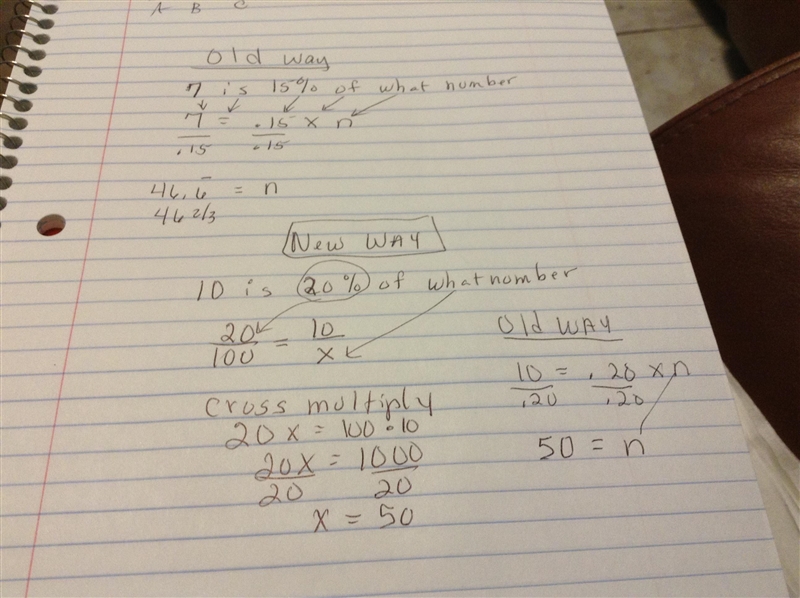 A B C
Old Way
7 is 15% of what number
7 = .15 x n
.15 .15
46.6̅ = n
46 2/3
New WAY
10 is 20% of what number
20 = 10
100 x
Cross multiply
20x = 100 • 10
20x = 1000
20 20
x = 50
Old WAY
10 = .20 x n
.20 .20
50 = n